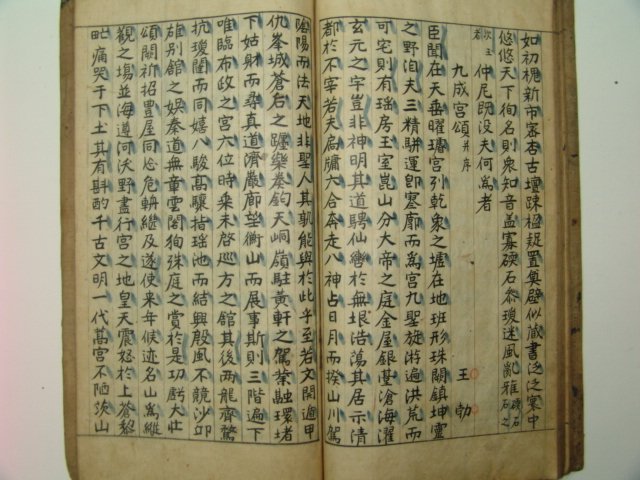 如初槐新市審杏古壇踈楹疑置奠壁似藏書泛泛寰中
悠悠天下徇名則衆知音盖寡硬石參瓊迷風亂雅
仲尼既没夫何為者
九成宮頌并序
王勃
臣聞在天垂曜璿宮列乾象之墟在地班形珠闕鎮坤靈
之野洎夫三精騈運卽寥廓而爲宮九聖旋游遍洪荒而
可宅則有瑶房玉室崑山分大帝之庭金屋銀臺滄海濯
玄元之宇豈非神明其道騁仙轡於無垠浩蕩其居示清
都於不宰若夫扃牖六合奔走八神占日月而揆山川駕
陰陽而法天地非聖人其孰能與於此乎至若文閣遁甲
仇峯城蒼右之躔樂奏鈞天峒嶺駐黄軒之駕縈融環堵
下姑射而尋真道濟巖廊望衡山而展事斯則三階遍下
唯臨布政之宮六位時乘未啓巡方之館其後兩龍齊駕
抗瓊闈而同嬉八駿高驤指瑶池而結興殷風不競沙丘
雄别館之娛秦道無章雲閣狥殊庭之賞於是功虧大壯
頌闕祈招豊屋同忩危輈繼及遂使来年候迹名山爲絶
觀之場並海遵河沃野盡行宮之地皇天震怒於上蒼黎
痛哭于下土其有斟酌千古文明一代萵宮不陋茨山